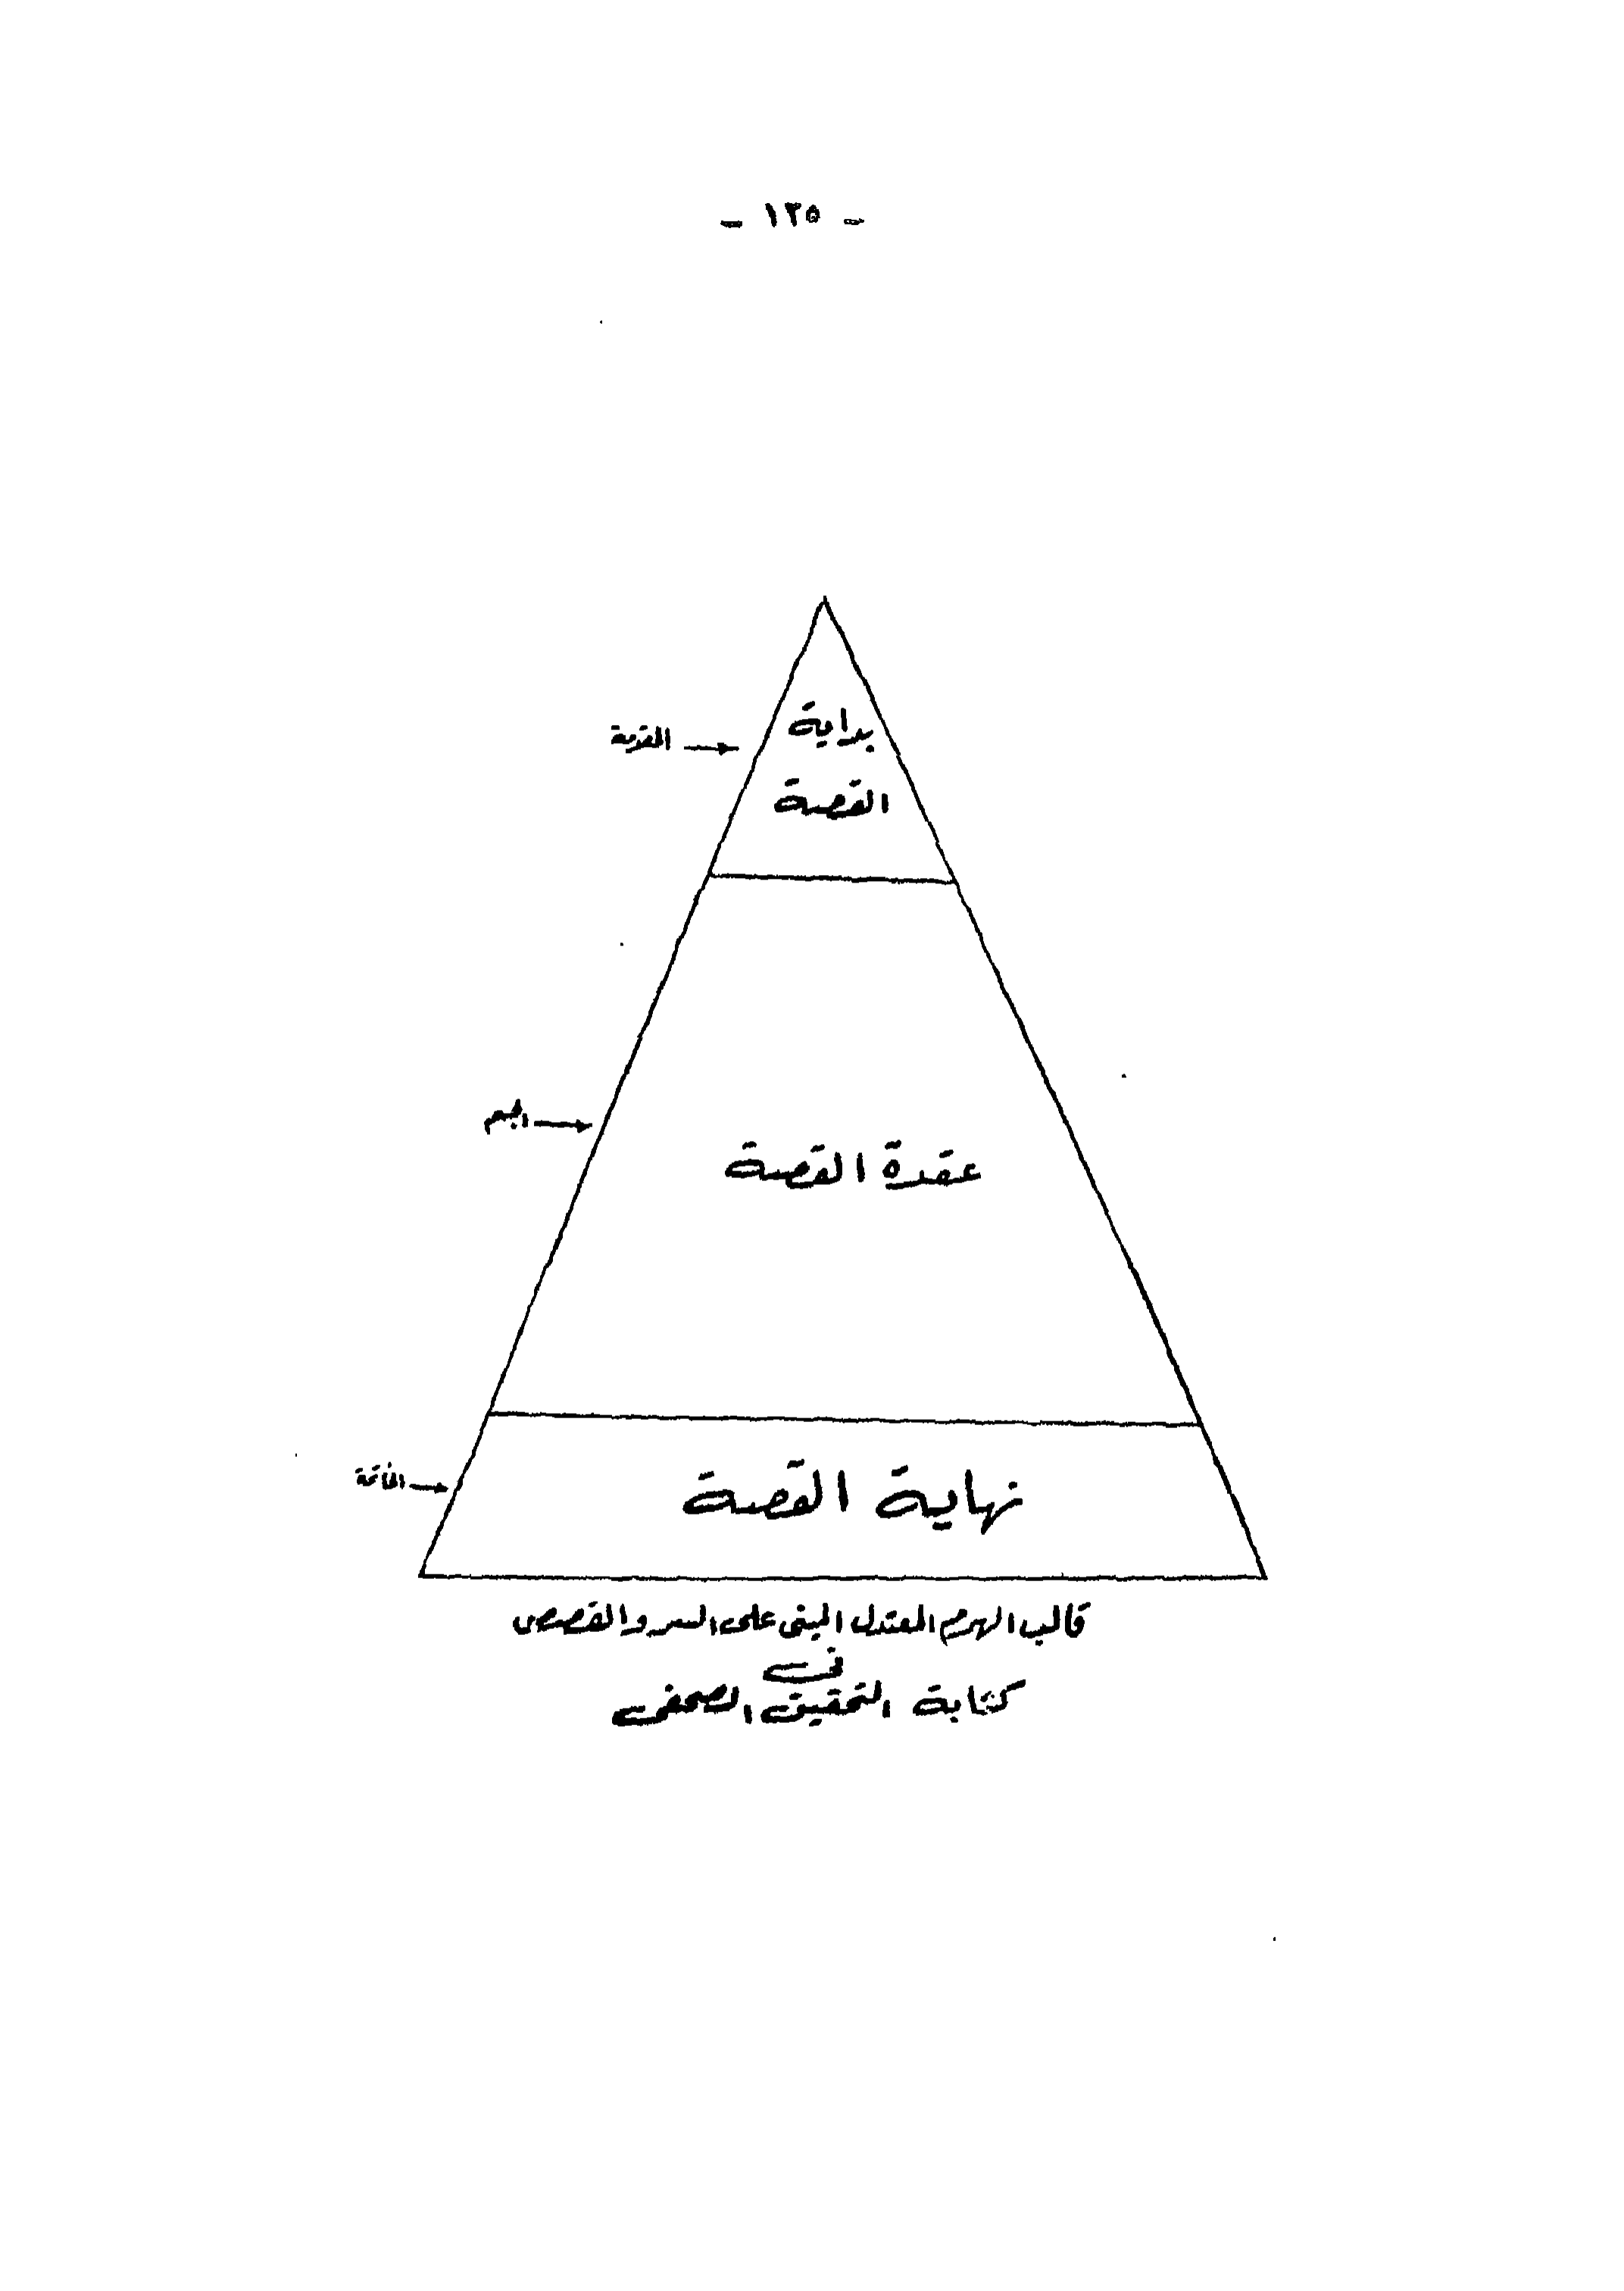 - ١٢٥ -
بداية
المقدمة
القصة
الجسم
عقدة القصة
نهاية القصة
الخاتمة
قالب الهرم المعتدل المبنى على السرد القصصى
فى
كتابة التحقيق الصحفى